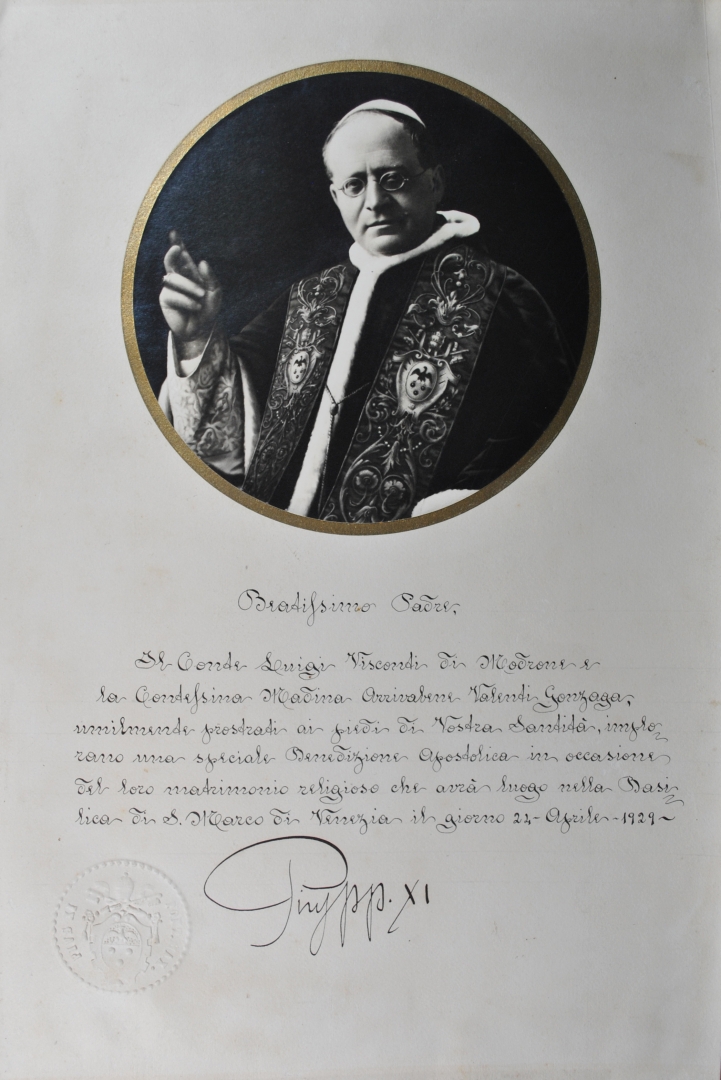 Beatissimo Padre,
Il Conte Luigi Visconti di Modrone e
la Contessina Madina Arrivabene Valenti Gonzaga,
umilmente prostrati ai piedi di Vostra Santità, implo-
rano una speciale Benedizione Apostolica in occasione
del loro matrimonio religioso che avrà luogo nella Basi-
lica di S. Marco di Venezia il giorno 24 - Aprile - 1929 ~
Pius pp. XI